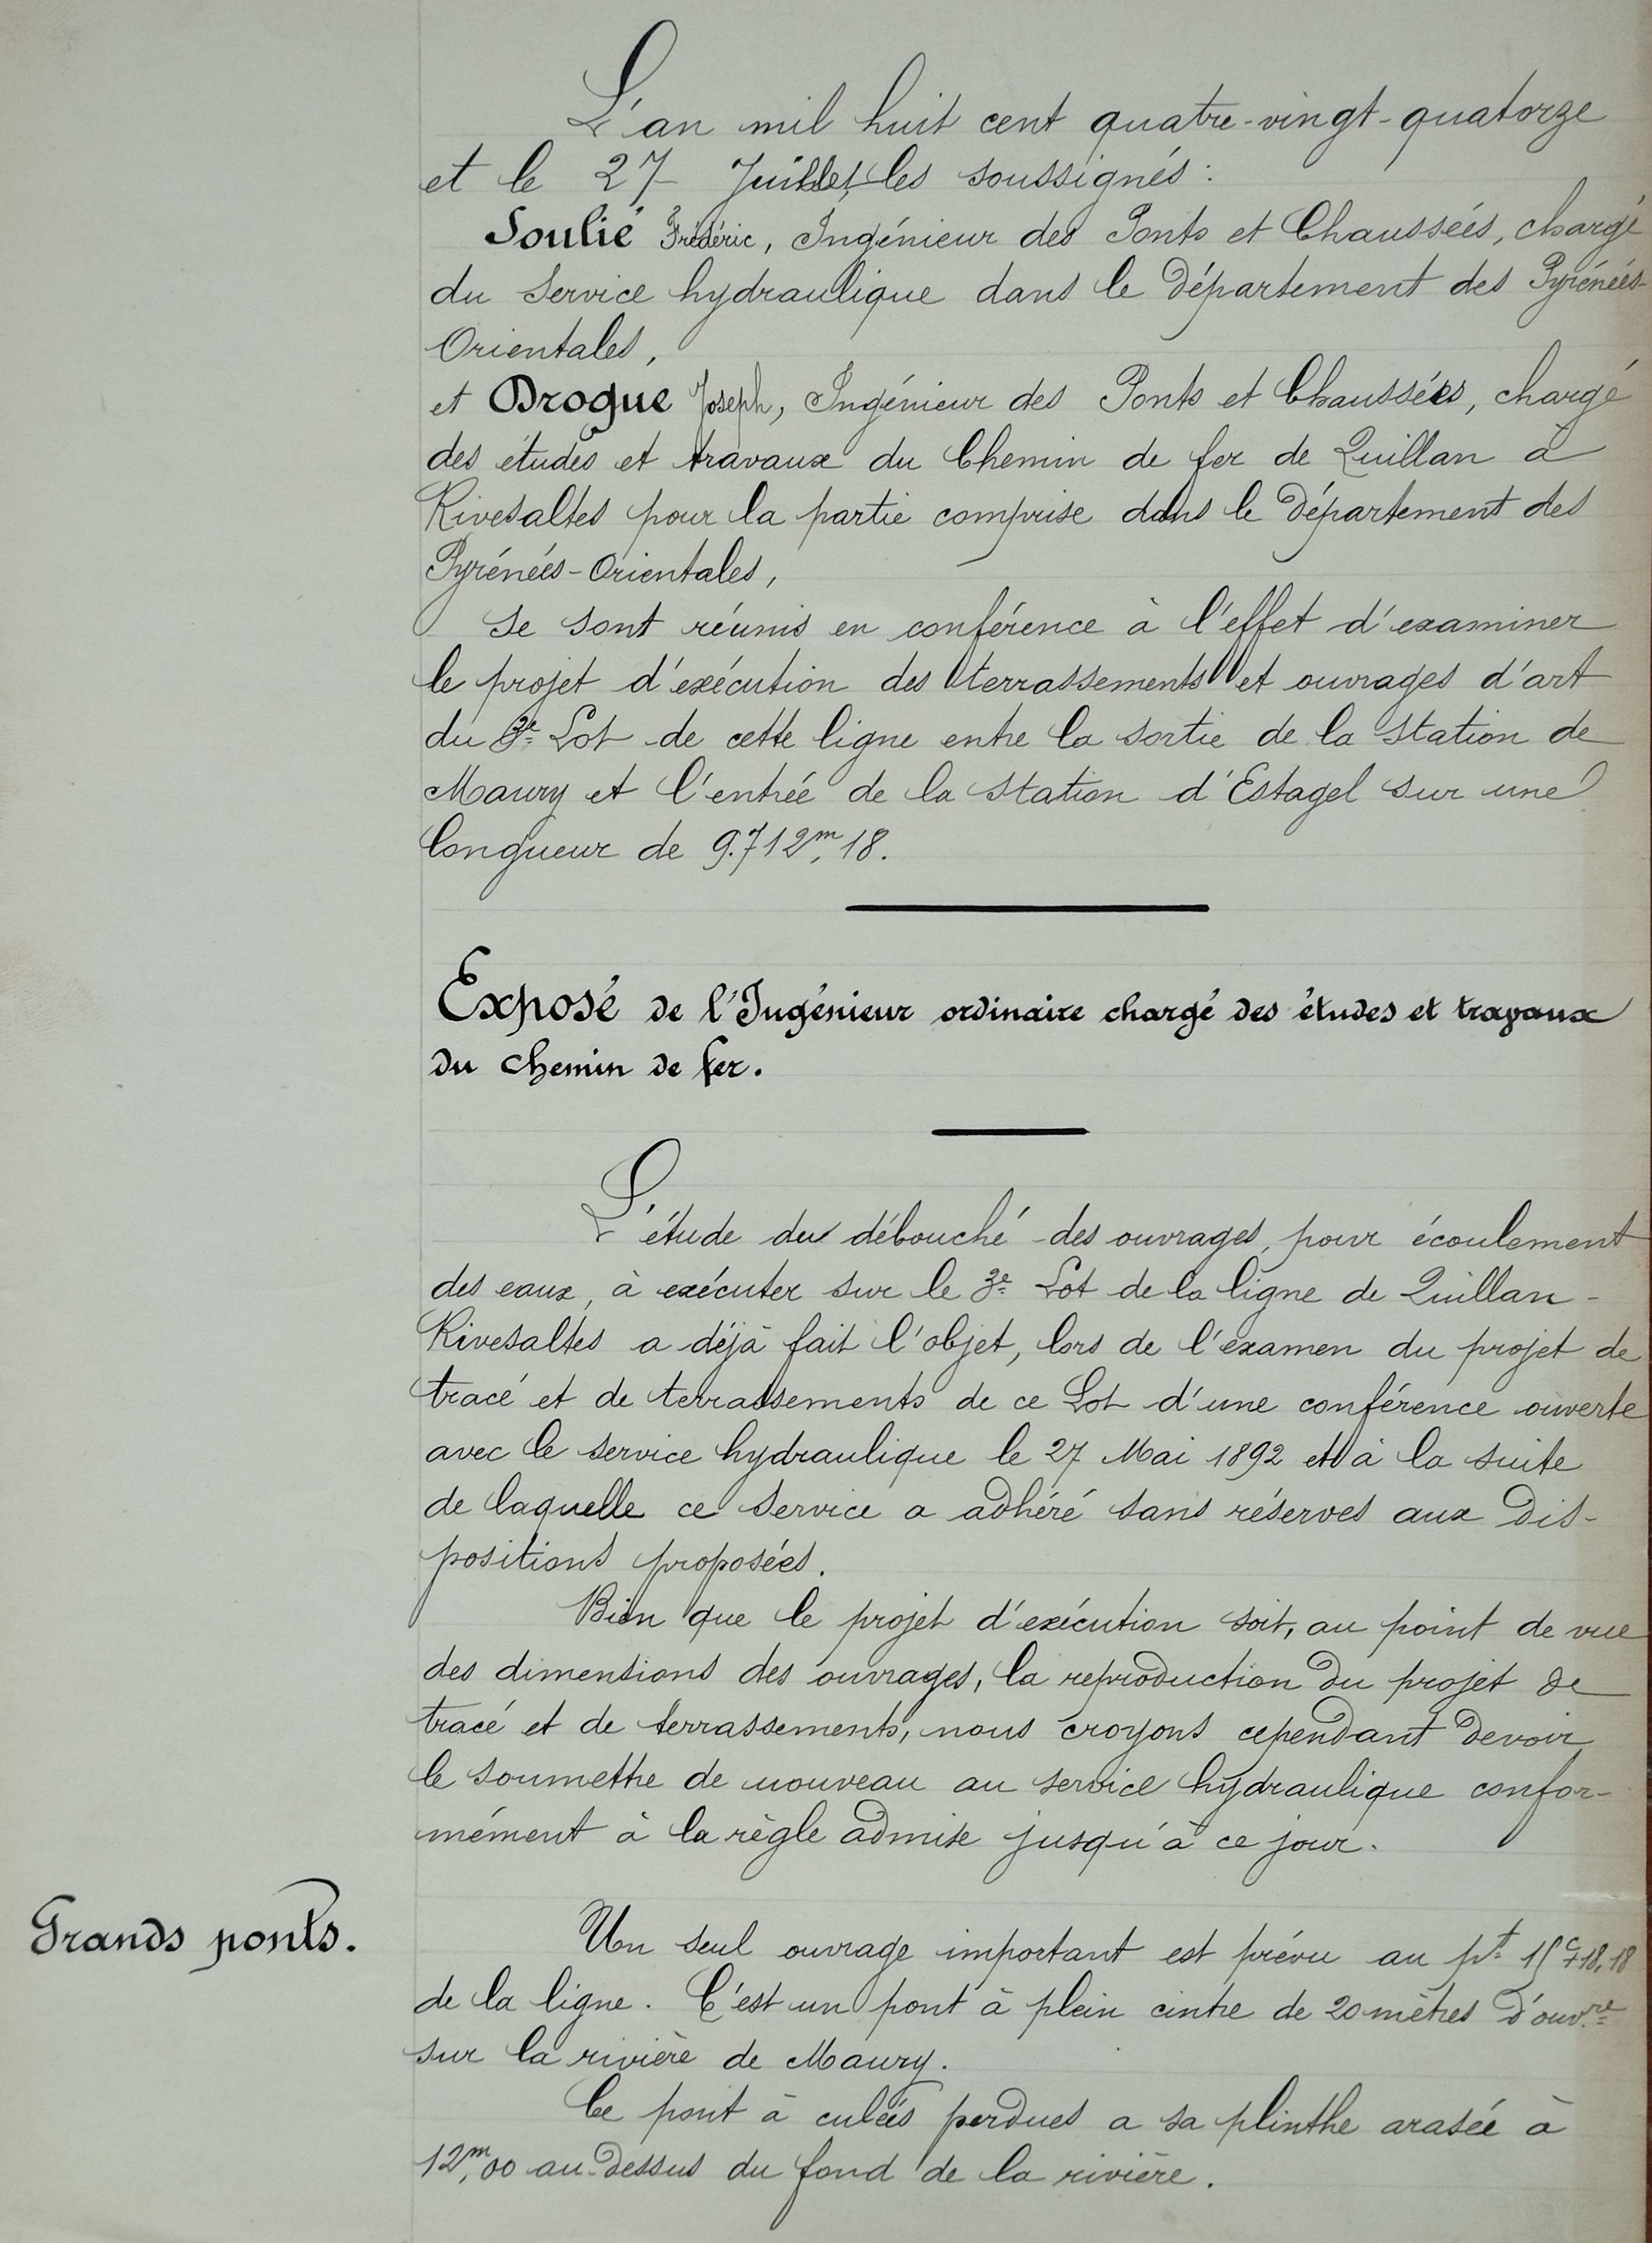 L'an mil huit cent quatre-vingt-quatorze
et le 27 Juillet, les soussignés :
Soulié Frédéric, Ingénieur des Ponts et Chaussées, chargé
du Service hydraulique dans le Département des Pyrénées-
Orientales,
et Drogue Joseph, Ingénieur des Ponts et Chaussées, chargé
des études et travaux du Chemin de fer de Quillan à
Rivesaltes pour la partie comprise dans le Département des
Pyrénées-Orientales,
se sont réunis en conférence à l'effet d'examiner
le projet d'exécution des terrassements et ouvrages d'art
du 3e Lot de cette ligne entre la sortie de la Station de
Maury et l'entrée de la station d'Estagel sur une
longueur de 9.712m,18.
Exposé de l'Ingénieur ordinaire chargé des études et travaux
du chemin de fer.
L'étude du débouché des ouvrages, pour écoulement
des eaux, à exécuter sur le 3e Lot de la ligne de Quillan-
Rivesaltes a déjà fait l'objet, lors de l'examen du projet de
tracé et de terrassements de ce Lot d'une conférence ouverte
avec le service hydraulique le 27 Mai 1892 et à la suite
de laquelle ce Service a adhéré sans réserves aux dis-
positions proposées.
Bien que le projet d'exécution soit, au point de vue
des dimensions des ouvrages, la reproduction du projet de
tracé et de terrassements, nous croyons cependant devoir
le soumettre de nouveau au service hydraulique confor-
mément à la règle admise jusqu'à ce jour.
Grands ponts.
Un seul ouvrage important est prévu au pt
de la ligne. C'est un pont à plein cintre de 20 mètres d'ouvre
sur la rivière de Maury.
Ce pont à culées perdues a sa plinthe arasée à
12m,00 au-dessus du fond de la rivière.